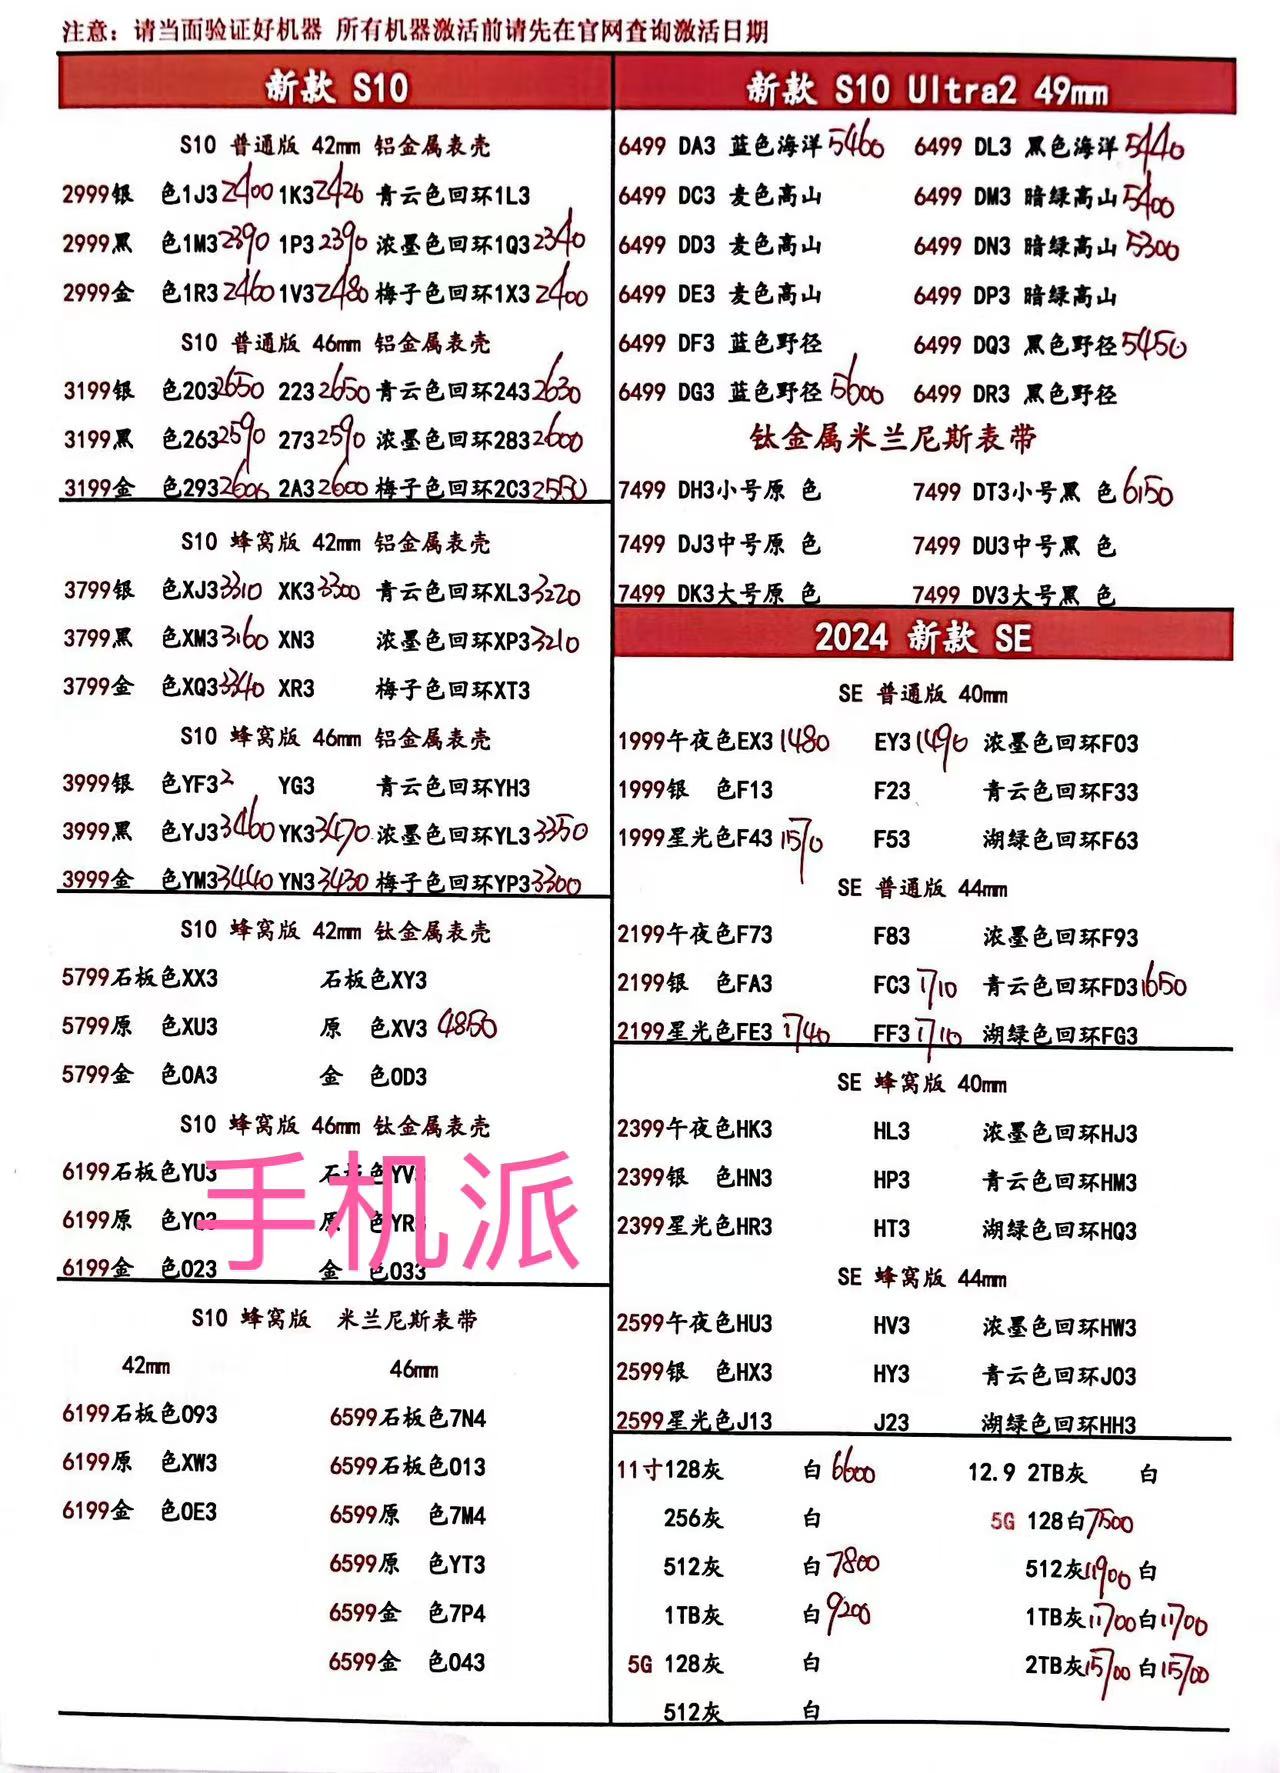 注意：请当面验证好机器 所有机器激活前请先在官网查询激活日期
新款 S10
S10 普通版 42mm 铝金属表壳
2999银 色1J3 2400 1K3 2420 青云色回环1L3
2999黑 色1M3 2390 1P3 2390 浓墨色回环1Q3 2340
2999金 色1R3 2460 1V3 2480 梅子色回环1X3 2400
S10 普通版 46mm 铝金属表壳
3199银 色203 2650 223 2650 青云色回环243 2630
3199黑 色263 2590 273 2590 浓墨色回环283 2600
3199金 色293 2600 2A3 2600 梅子色回环2C3 2550
S10 蜂窝版 42mm 铝金属表壳
3799银 色XJ3 3310 XK3 3300 青云色回环XL3 3220
3799黑 色XM3 3160 XN3 浓墨色回环XP3 3210
3799金 色XQ3 3340 XR3 梅子色回环XT3
S10 蜂窝版 46mm 铝金属表壳
3999银 色YF3 2 YG3 青云色回环YH3
3999黑 色YJ3 3460 YK3 3470 浓墨色回环YL3 3350
3999金 色YM3 3440 YN3 3430 梅子色回环YP3 3300
S10 蜂窝版 42mm 钛金属表壳
5799石板色XX3 石板色XY3
5799原 色XU3 原 色XV3 4850
5799金 色0A3 金 色0D3
S10 蜂窝版 46mm 钛金属表壳
6199石板色YU3 石板色YV3
6199原 色YQ3 原 色YR3
6199金 色023 金 色033
手机派
S10 蜂窝版 米兰尼斯表带
42mm 46mm
6199石板色093 6599石板色7N4
6199原 色XW3 6599石板色013
6199金 色0E3 6599原 色7M4
6599原 色YT3
6599金 色7P4
6599金 色043
新款 S10 Ultra2 49mm
6499 DA3 蓝色海洋 5460 6499 DL3 黑色海洋 5440
6499 DC3 麦色高山 6499 DM3 暗绿高山 5400
6499 DD3 麦色高山 6499 DN3 暗绿高山 5300
6499 DE3 麦色高山 6499 DP3 暗绿高山
6499 DF3 蓝色野径 6499 DQ3 黑色野径 5450
6499 DG3 蓝色野径 5600 6499 DR3 黑色野径
钛金属米兰尼斯表带
7499 DH3小号原 色 7499 DT3小号黑 色 6150
7499 DJ3中号原 色 7499 DU3中号黑 色
7499 DK3大号原 色 7499 DV3大号黑 色
2024 新款 SE
SE 普通版 40mm
1999午夜色EX3 1480 EY3 1490 浓墨色回环F03
1999银 色F13 F23 青云色回环F33
1999星光色F43 1570 F53 湖绿色回环F63
SE 普通版 44mm
2199午夜色F73 F83 浓墨色回环F93
2199银 色FA3 FC3 1710 青云色回环FD3 1650
2199星光色FE3 1740 FF3 1710 湖绿色回环FG3
SE 蜂窝版 40mm
2399午夜色HK3 HL3 浓墨色回环HJ3
2399银 色HN3 HP3 青云色回环HM3
2399星光色HR3 HT3 湖绿色回环HQ3
SE 蜂窝版 44mm
2599午夜色HU3 HV3 浓墨色回环HW3
2599银 色HX3 HY3 青云色回环J03
2599星光色J13 J23 湖绿色回环HH3
11寸128灰 白 6600 12.9 2TB灰 白
256灰 白 5G 128白 7500
512灰 白 7800 512灰 11900 白
1TB灰 白 9200 1TB灰 11700 白 11700
5G 128灰 白 2TB灰 15700 白 15700
512灰 白